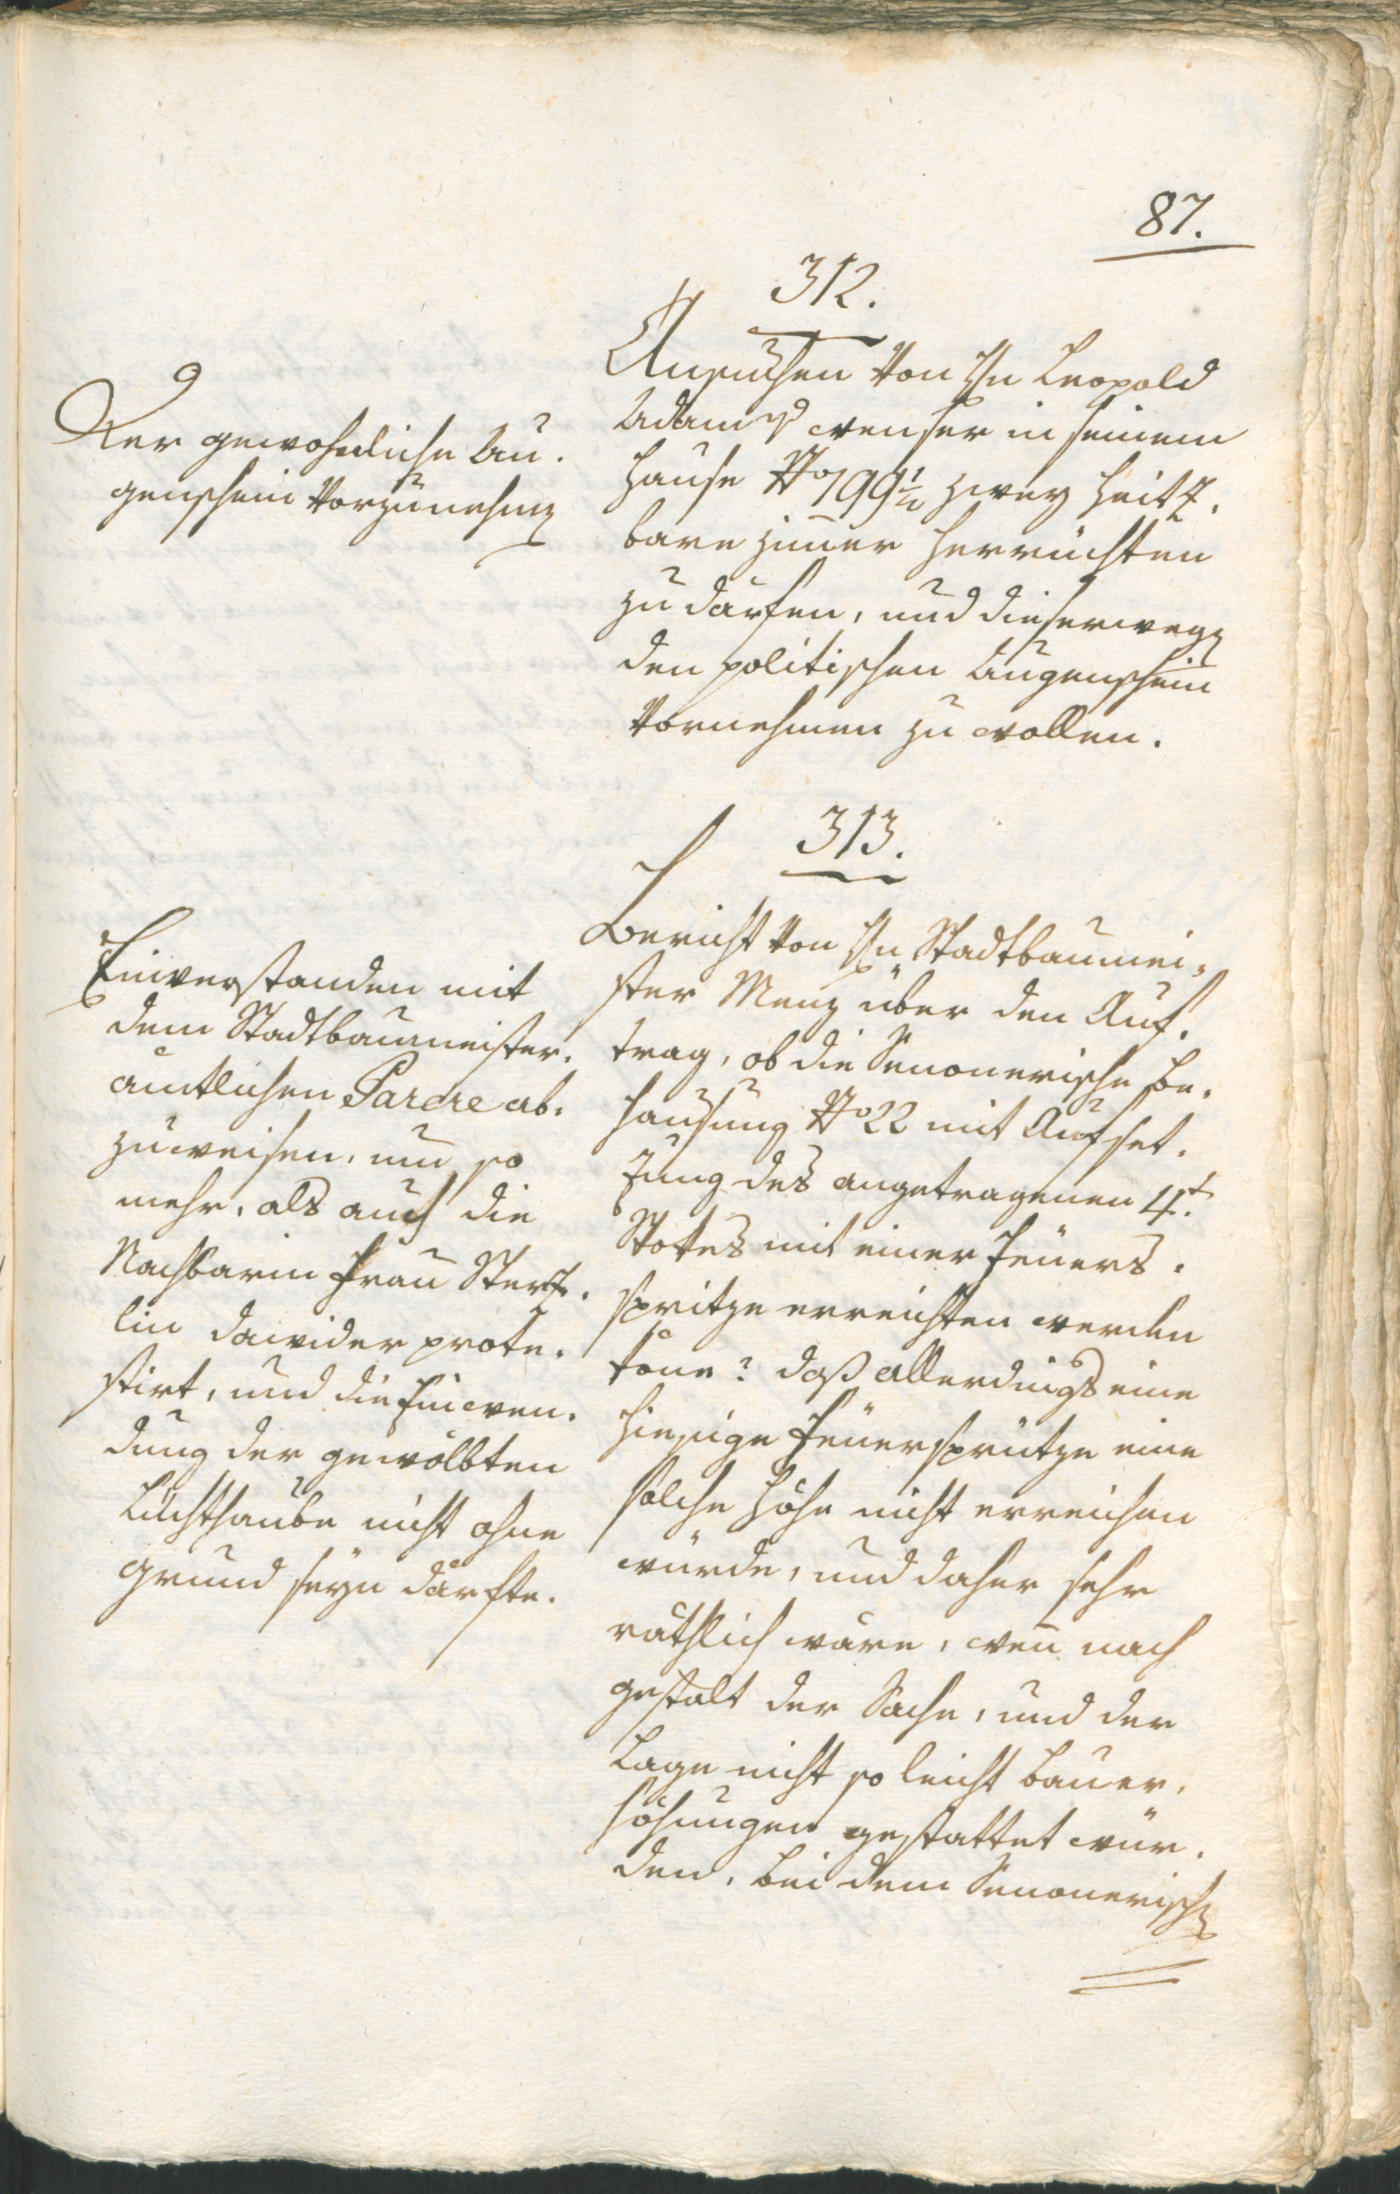 87.
312.
Ansuchen von Hn Leopold
Adam
wenser in seinem
Hause No 199½ zwey heitz-
bare Zimer herrüchten
zu därfen, und dieserwegen
den politischen Augenschein
vornehmen zu wollen.
Der gewohnliche Au-
genschein vorzunehmen
313.
Bericht von Hn Stadtbaumei-
ster Menz über den Auf-
trag, ob die Senonerische Be-
hausung No 22 mit Aufset-
zung des angetragenen 4t.
Stokes mit einer Feuers-
spritze erreichten werden
köne? daß allerdings eine
hiesige Feuersprütze eine
solche Höhe nicht erreichen
würde, und daher sehr
räthlich wäre, wen nach
gestalt der Sache, und der
Lage nicht so leicht Bauer-
höhungen gestattet wür-
den, bei dem Senonerischen
Einverstanden mit
dem Stadtbaumeister-
amtlichen Parere ab-
zuweisen, um so
mehr, als auch die
Nachbarin Frau Sterz-
lin dawider prote-
stirt, und die Einwen-
dung der gewölbten
Luchthaube nicht ohne
Grund seyn därfte.